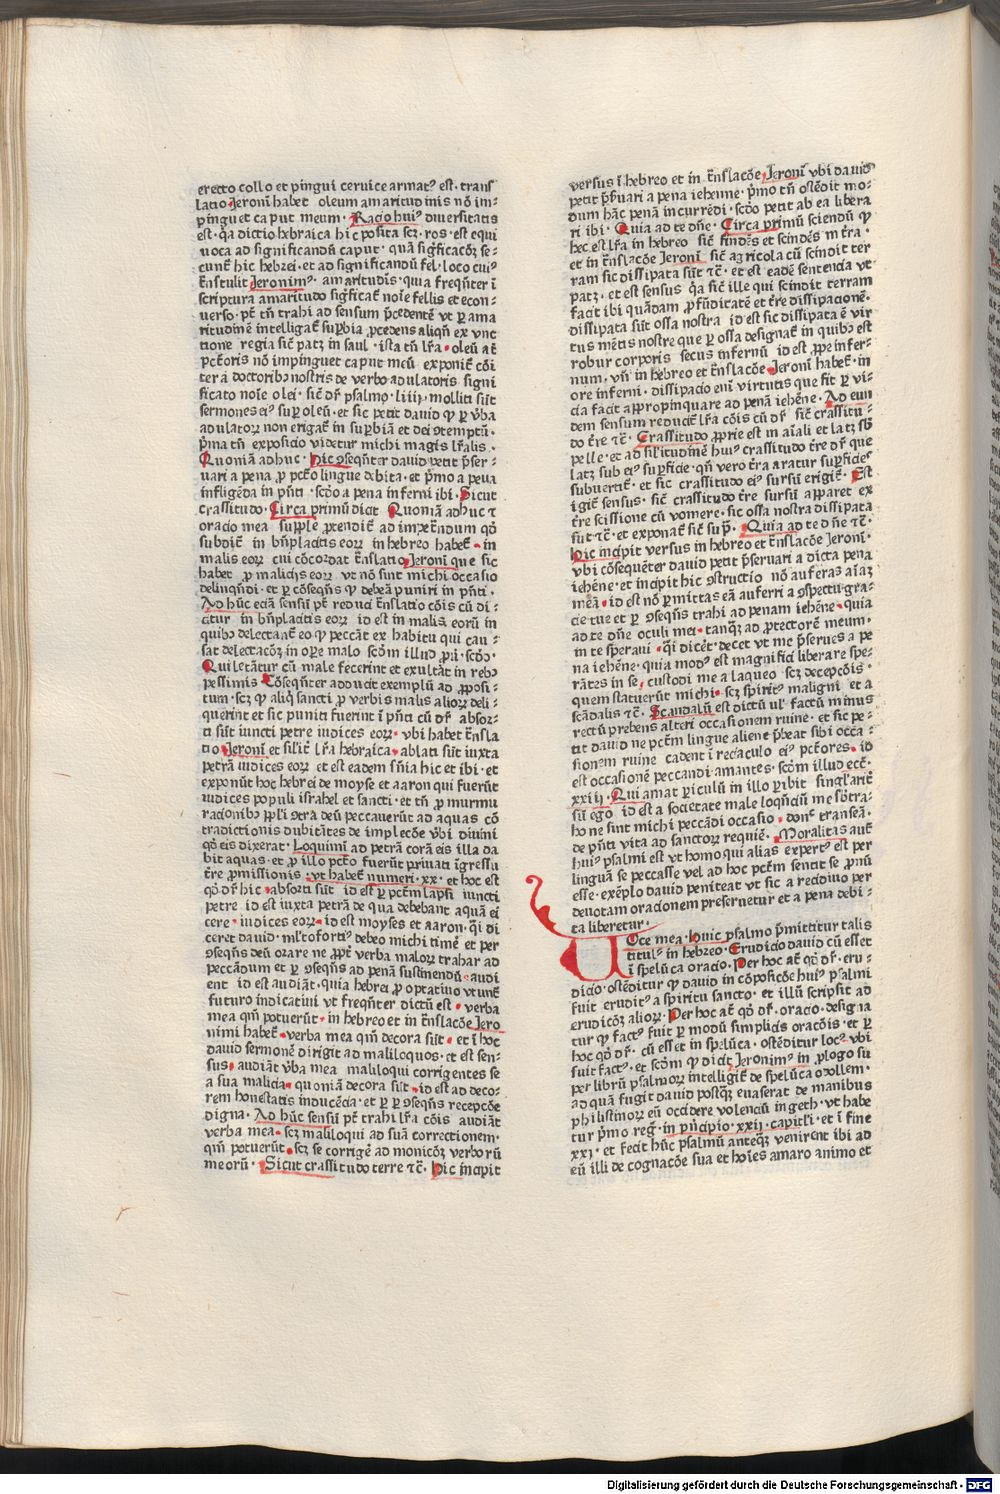 erecto collo et pingui ceruice armatꝰ est · trans
latio · Jeronĩ habet oleum amaritudinis nō im-
pinguet caput meum · Racio huiꝰ diuersitatis
est · q̃a dictio hebraica hic posita scꝫ · ros · est equi
uoca ad significandū caput · quā sigr̄ficacōꝫ se-
cunt̃ hic hebrei · et ad significandū fel · loco cuiꝰ
t̃nstulit Jeronimꝰ · amaritudĩs · quia freq̃nter ĩ
scriptura amaritudo sigr̄ficat̃ noĩe fellis et econ-
uerso · pt̃ tñ trahi ad sensum p̃cedentē vt ꝑ ama
ritudinē intelligat̃ suꝑbia ꝓcedens aliqñ ex vnc
tione regia sic̃ patꝫ in saul · ista tñ lr̃a · oleū at̃
pct̃oris nō impinguet caput meū exponit̃ cōi
ter a doctoribꝰ nostris de verbo adulatoris signi
ficato noĩe olei · sic̃ dr̃ psalmo · liiij · molliti sūt
sermones eiꝰ suꝑ oleū · et sic petit dauid ꝙ ꝑ v̄ba
adulatoꝝ non erigat̃ in suꝑbiā et dei ꝯtemptū ·
p̃ma tñ exposicio videtur michi magis lr̃alis ·
Quoniā adhuc · Hic ꝯseq̃nter dauid petit p̃ser-
uari a pena ꝓ pct̃o lingue debita · et p̃mo a pena
infligēda in pñti · scd̃o a pena inferni ibi · Sicut
crassitudo · Circa primū dicit Quoniā adhuc ⁊
oracio mea supple p̄tendit̃ ad impet̃ndum qd̃
subdit̃ in bñplacitis eoꝝ in hebreo habet̃ · in
malis eoꝝ cui cōcordat t̃nslatio · Jeronĩ que sic
habet ꝓ maliciis eoꝝ vt nō sint michi occasio
delinqñdi · et ꝑ cōseq̃ns ꝙ debeā puniri in pñti ·
Ad hūc eciā sensū pt̃ reduci t̃nslatio cōis cū di-
citur in bñplacitis eoꝝ id est in malis eorū in
quibꝰ delectant̃ eo ꝙ peccāt ex habitu qui cau-
sat delectacōꝫ in oꝑe malo scd̃m illud ꝓũ · scd̃o ·
Qui letātur cū male fecerint et exultāt in rebꝰ
pessimis · Cōseq̃nter adducit exemplū ad ꝓposi-
tum · scꝫ ꝙ aliq̃ sancti ꝓ verbis malis alioꝝ deli-
querint et sic puniti fuerint ĩ pñti cū dr̃ absor-
ti sūt iuncti petre iudices eoꝝ · vbi habet t̃nsla
tio · Jeronĩ et sil̃it̃ lr̃a hebraica · ablati sūt iuxta
petrā iudices eoꝝ et est eadem sñia hic et ibi · et
exponūt hoc hebrei de moyse et aaron qui fuerūt
iudices populi israhel et sancti · et tñ ꝓ murmu
racionibꝰ ppl̃i ꝯtra deū peccauerūt ad aquas cō
tradictionis dubitātes de implecōe v̄bi diuini
qd̃ eis dixerat · Loquimĩ ad petrā corā eis illa da
bit aquas · et ꝓ illo pct̃o fuerūt priuati ĩgressu
t̃re ꝓmissionis · vt habet̃ numeri · xx · et hoc est
qd̃ dr̃ hic · absorti sūt id est ꝑ pct̃m lapsi iuncti
petre id est iuxta petrā de qua debebant aquā ei
cere · iudices eoꝝ · id est moyses et aaron · q̃i di
ceret dauid · ml̃tofortiꝰ debeo michi timē et per
ꝯseq̃ns deū orare ne ꝓpt̃ verba maloꝝ trahar ad
peccādum et ꝑ ꝯseq̃ns ad penā sustinendū · audi
ent id est audiāt · quia hebrei ꝓ optatiuo vtunt̃
futuro indicatiui vt freq̃nter dictū est · verba
mea qm̃ potuerūt · in hebreo et in t̃nslacōe Jero
nimi habet̃ · verba mea qm̃ decora sūt · et ĩ hoc
dauid sermonē dirigit ad maliloquos · et est sen-
sus · audiāt v̄ba mea maliloqui corrigentes se
a sua malicia · quoniā decora sūt · id est ad deco-
rem honestatis inducēcia · et ꝑ ꝑ ꝯseq̃ns recepcōe
digna · Ad hūc sensū pt̃ trahi lr̃a cōis audiāt
verba mea · scꝫ maliloqui ad suā correctionem ·
qm̃ potuerūt · scꝫ se corrigē ad monicōꝫ verborū
meorū · Sicut crassitudo terre ⁊c̃ · Hic incipit
versus ĩ hebreo et in t̃nslacōe · Jeronĩ vbi dauid
petit p̃buari a pena iehenne · p̃mo tñ ostēdit mo-
dum hāc penā incurrēdi · scd̃o petit ab ea libera
ri ibi · Quia ad te dñe · Circa primū sciendū ꝙ
hec est lr̃a in hebreo sic̃ findēs et scindēs in t̃ra ·
et in t̃nslacōe Jeronĩ sic̃ agricola cū scindit ter
ram sic dissipata sūt ⁊c̃ · et est eadē sentencia vt
patꝫ · et est sensus q̃a sic̃ ille qui scindit terram
facit ibi quādam ꝓfūditatē et t̃re dissipacionē ·
dissipata sūt ossa nostra id est sic dissipata ē vir
tus mētis nostre que ꝑ ossa designat̃ in quibꝰ est
robur corporis secus infernū id est ꝓpe infer-
num · vñ in hebreo et t̃nslacōe · Jeronĩ habet̃ · in
ore inferni · dissipacio enĩ virtutis que fit ꝑ vi-
cia facit appropinquare ad penā iehēne · Ad eun
dem sensum reducit̃ lr̃a cōis cū dr̃ sic̃ crassitu-
do t̃re ⁊c̃ · Crassitudo ꝓprie est in aĩali et latꝫ sb̃
pelle · et ad sil̃itudinē huiꝰ crassitudo t̃re dr̃ que
latꝫ sub eiꝰ suꝑficie · qñ vero t̃ra aratur suꝑficies
subuertit̃ · et sic crassitudo eiꝰ sursū erigit̃ · Est
igit̃ sensus · sic̃ crassitudo t̃re sursū apparet ex
t̃re scissione cū vomere · sic ossa nostra dissipata
sūt ⁊c̃ · et exponat̃ sic̃ supͣ · Quia ad te dñe ⁊c̃ ·
Hic incipit versus in hebreo et t̃nslacōe Jeronĩ ·
vbi cōsequēter dauid petit p̃seruari a dicta pena
iehēne · et incipit hic ꝯstructio nō auferas aĩaꝫ
meā · id est nō ꝑmittas eā auferri a ꝯspectu gra-
cie tue et ꝑ ꝯseq̃ns trahi ad penam iehēne · quia
ad te dñe oculi mei · tanq̃ꝫ ad ꝓtectorē meum ·
in te speraui · q̃i dicet̃ · decet vt me p̃serues a pe
na iehēne · quia modꝰ est magnifici liberare spe-
rātes in se · custodi me a laqueo scꝫ decepcōis ·
quem statuerūt michi · scꝫ spiritꝰ maligni et a
scādalis ⁊c̃ · Scandalū est dictū ul̃ factū minus
rectū prebens alteri occasionem ruine · et sic pe-
tit dauid ne pct̃m lingue aliene p̃beat sibi occa-
sionem ruine cadent ĩ reciaculo eiꝰ pct̃ores · id
est occasionē peccandi amantes · scd̃m illud ecc̃ ·
xxiij · Qui amat ꝑiculū in illo ꝑibit singl̃arit̃
sū ego id est a societate male loq̃nciū me sb̃tra-
ho ne sint michi peccādi occasio · donc̃ transeā ·
de pñti vita ad sanctoꝝ requiē · Moralitas aut̃
huiꝰ psalmi est vt homo qui alias expertꝰ est per
linguā se peccasse vel ad hoc pct̃m sentit se ꝓnū
esse · exēplo dauid peniteat vt sic a recidiuo per
deuotam oracionem preseruetur et a pena debi-
ta liberetur ·
Uoce mea · Huic psalmo p̃mittitur talis
titulꝰ in hebreo · Erudicio dauid cū esset
ĩ spelūca oracio · Per hoc at̃ qd̃ dr̃ · eru-
dicio · ostēditur ꝙ dauid in cōposicōe huiꝰ psalmi
fuit eruditꝰ a spiritu sancto · et illū scripsit ad
erudicōꝫ alioꝝ · Per hoc at̃ qd̃ dr̃ · oracio · designa
tur ꝙ factꝰ fuit ꝑ modū simplicis oracōis · et ꝑ
hoc qd̃ dr̃ · cū esset in spelūca · ostēditur locꝰ vbi
fuit factꝰ · et scd̃m ꝙ dicit Jeronimꝰ in ꝓlogo su
per librū psalmoꝝ intelligit̃ de spelūca odollem ·
ad quā fugit dauid postq̃ꝫ euaserat de manibus
philistinoꝝ eū occidere volenciū in geth · vt habe
tur p̃mo reg̃ · in pñcipio · xxij · capitl̃i · et ĩ fine
xxi · et fecit hūc psalmū anteq̃ꝫ venirent ibi ad
eū illi de cognacōe sua et hoĩes amaro animo et
Digitalisierung gefördert durch die Deutsche Forschungsgemeinschaft - DFG